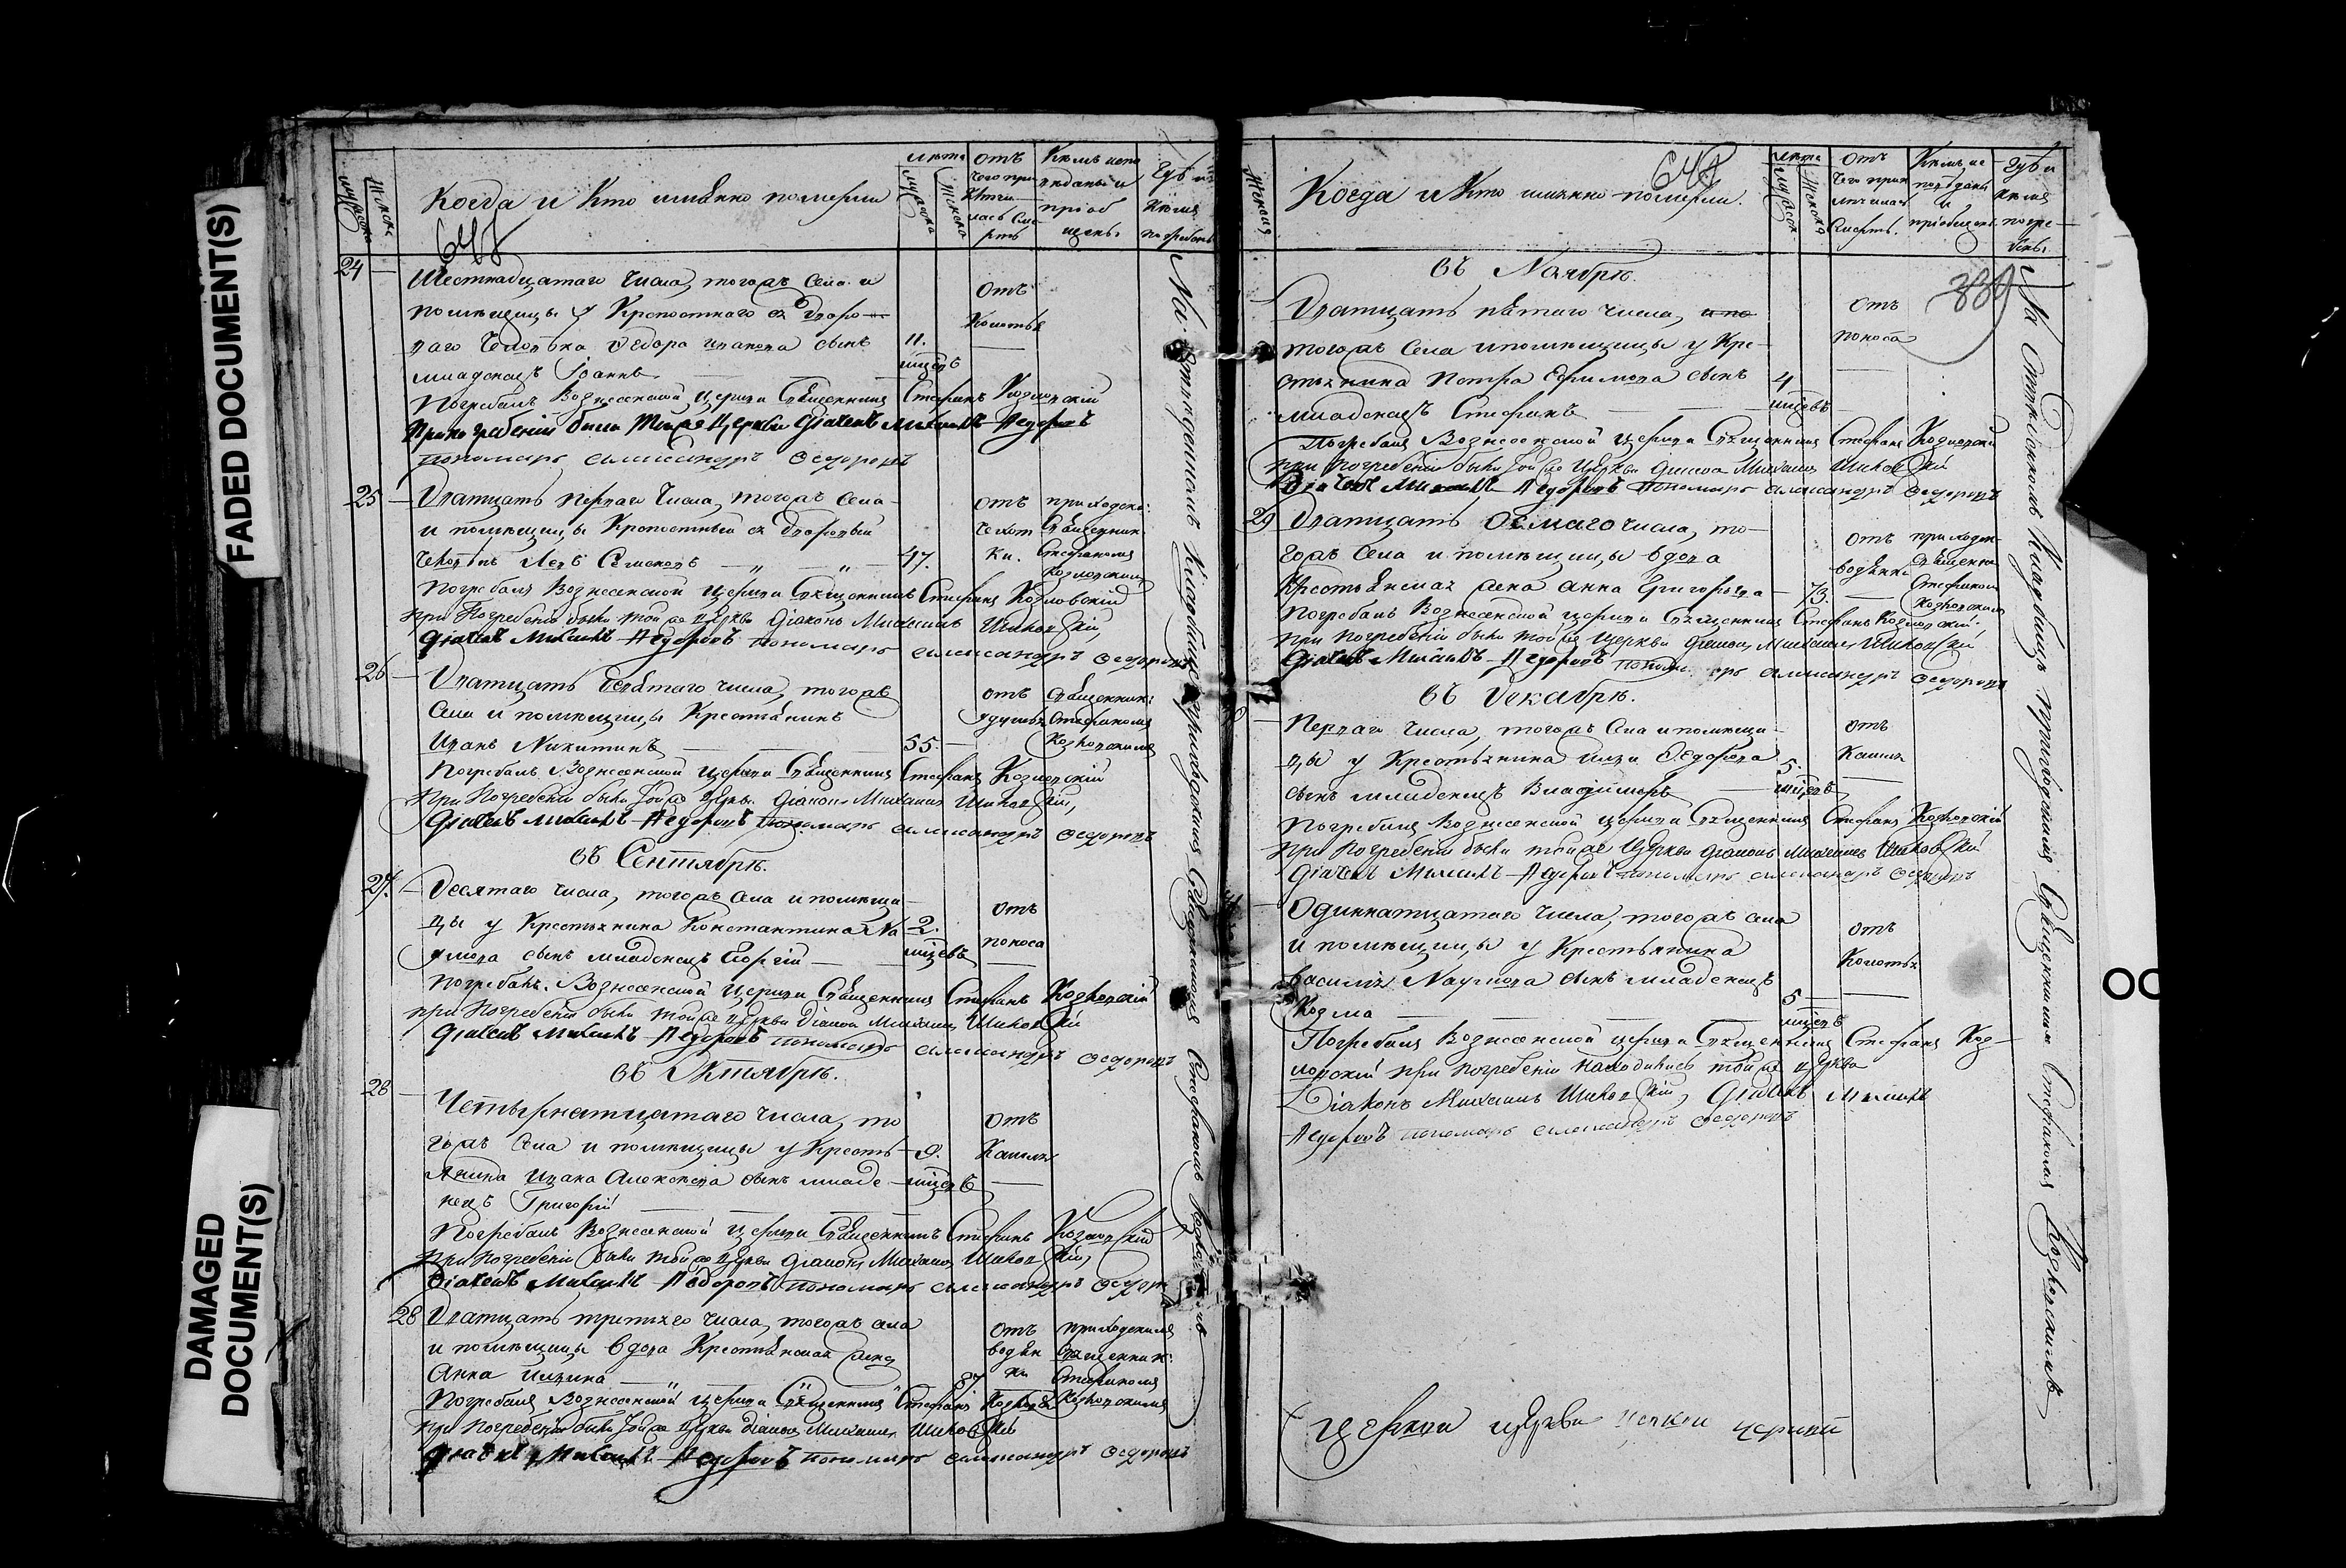 FADED DOCUMENT(S)
DAMAGED
DOCUMENT(S)
Когда и кто имѣнно померли
лѣта
мужеска
женска
отъ
чего при
ключи
лась сме
рть
Кѣмъ испо
вѣданы и
пріоб
щены
Гдѣ и
кѣмъ
погребены
24
Шестнадцатаго числа, тогожъ села и
помѣщицы у Крепостнаго
ваго человѣка Ѳедора Иванова сынъ
младенецъ Іоаннъ
11.
мѣцовъ
отъ
Колотья
Погребалъ Вознесенской церкви Священникъ Стефанъ Козловскій
При погребеніи были тойже Церкви Дьячекъ Михаилъ Федоровъ
пономарь Александръ Федоровъ
25
Дватцать перваго числа, тогожъ села
и помѣщицы Крепостный дворовый
человѣкъ Левъ Семеновъ
47.
отъ
чахот
ки.
приходски:
Священник
Стефаномъ
Козловскимъ
Погребалъ Вознесенской церкви Священникъ Стефанъ Козловскій
при Погребеніи были тойже церкви Діаконъ Михаилъ
Дьячекъ Михаилъ Федоровъ пономарь Александръ Федоровъ
26
Дватцать девятаго числа, тогожъ
села и помѣщицы Крестьянинъ
Иванъ Никитинъ
55
отъ
удушья
Священник:
Стефаномъ
Козловскимъ
Погребалъ Вознесенской церкви Священникъ Стефанъ Козловскій
При Погребеніи были тойже церкви Діаконъ Михаилъ
Дьячекъ Михаилъ Федоровъ пономарь Александръ Федоровъ
въ Сентябрѣ.
27.
Десятаго числа, тогожъ села и помѣщи
цы у Крестьянина Константина На
умова сынъ младенецъ Георгій
2.
мѣцовъ
отъ
поноса
Погребалъ Вознесенской церкви Священникъ Стефанъ Козловскій
при Погребеніи были тойже церкви Діаконъ Михаилъ
Дьячекъ Михаилъ Федоровъ пономарь Александръ Федоровъ
въ Октябрѣ.
28
Четырнатцатаго числа, то
гожъ села и помѣщицы у Кресть
янина Ивана Алексѣева сынъ младе
нецъ Григорій
9.
мѣцовъ
отъ
Кашля
Погребалъ Вознесенской церкви Священникъ Стефанъ Козловскій
При Погребеніи были тойже церкви Діаконъ Михаилъ
Дьячекъ Михаилъ Федоровъ пономарь Александръ Федоров
28
Дватцать третьяго числа, тогожъ села
и помѣщицы вдова Крестьянская жена
Анна
87
отъ
водян
ки
приходскимъ
Священник:
Стефаномъ
Козловскимъ
Погребалъ Вознесенской церкви Священникъ Стефанъ
при Погребеніи были тойже церкви Діаконъ Михаилъ
Дьячекъ Михаилъ Федоровъ пономарь Александръ Федоровъ
На отведенномъ Кладбищѣ приходскимъ Священникомъ Стефаномъ
женска
Когда и Кто имянно померли.
лѣта
мужеск.
женска
отъ
чего прик
лючилась
смерть.
Кѣмъ ис
повѣданы
и
пріобщены
Гдѣ и
кѣмъ
погре
бены.
339
въ Ноябрѣ.
Дватцать пѣтаго числа,
тогожъ села и помѣщицы у Кре
стьянина Петра Ефимова сынъ
младенецъ Стефанъ
4
мѣцовъ
отъ
поноса
Погребалъ Вознесенской церкви Священникъ Стефанъ Козловскій
при Погребеніи были тойже церкви Діаконъ Михаилъ
Дьячекъ Михаилъ Федоровъ пономарь Александръ Федоровъ
29
Дватцать осмаго числа, то
гожъ села и помѣщицы вдова
Крестьянская жена Анна Григорьева
73.
отъ
водянки
приходск
Священни
Стефаном
Козловскимъ
Погребалъ Вознесенской церкви Священникъ Стефанъ Козловскій.
При Погребеніи были тойже церкви Діаконъ Михаилъ
Дьячекъ Михаилъ Федоровъ пономарь Александръ Федоровъ
въ Декабрѣ.
Перваго числа, тогожъ села и помѣщи
цы у Крестьянина Ильи Федорова
сынъ младенецъ Владимиръ
5.
мѣцовъ
отъ
Кашля
Погребалъ Вознесенской церкви Священникъ Стефанъ Козловскій
При Погребеніи были тойже Церкви Діаконъ Михаилъ
Дьячекъ Михаилъ Федоровъ пономарь Александръ Федоровъ
Одиннатцатаго числа, тогожъ села
и помѣщицы у Крестьянина
Василья Наумова сынъ младенецъ
Козма
5
мѣцовъ
отъ
Колотья
Погребалъ Вознесенской церкви Священникъ Стефанъ Коз
ловскій при погребеніи находились тойже церкви
Діаконъ Михаилъ Дьячекъ Михаилъ
Федоровъ пономарь Александръ Федоровъ
На отведенномъ Кладбищѣ приходскимъ Священникомъ Стефаномъ Козловскимъ
церкви церкви